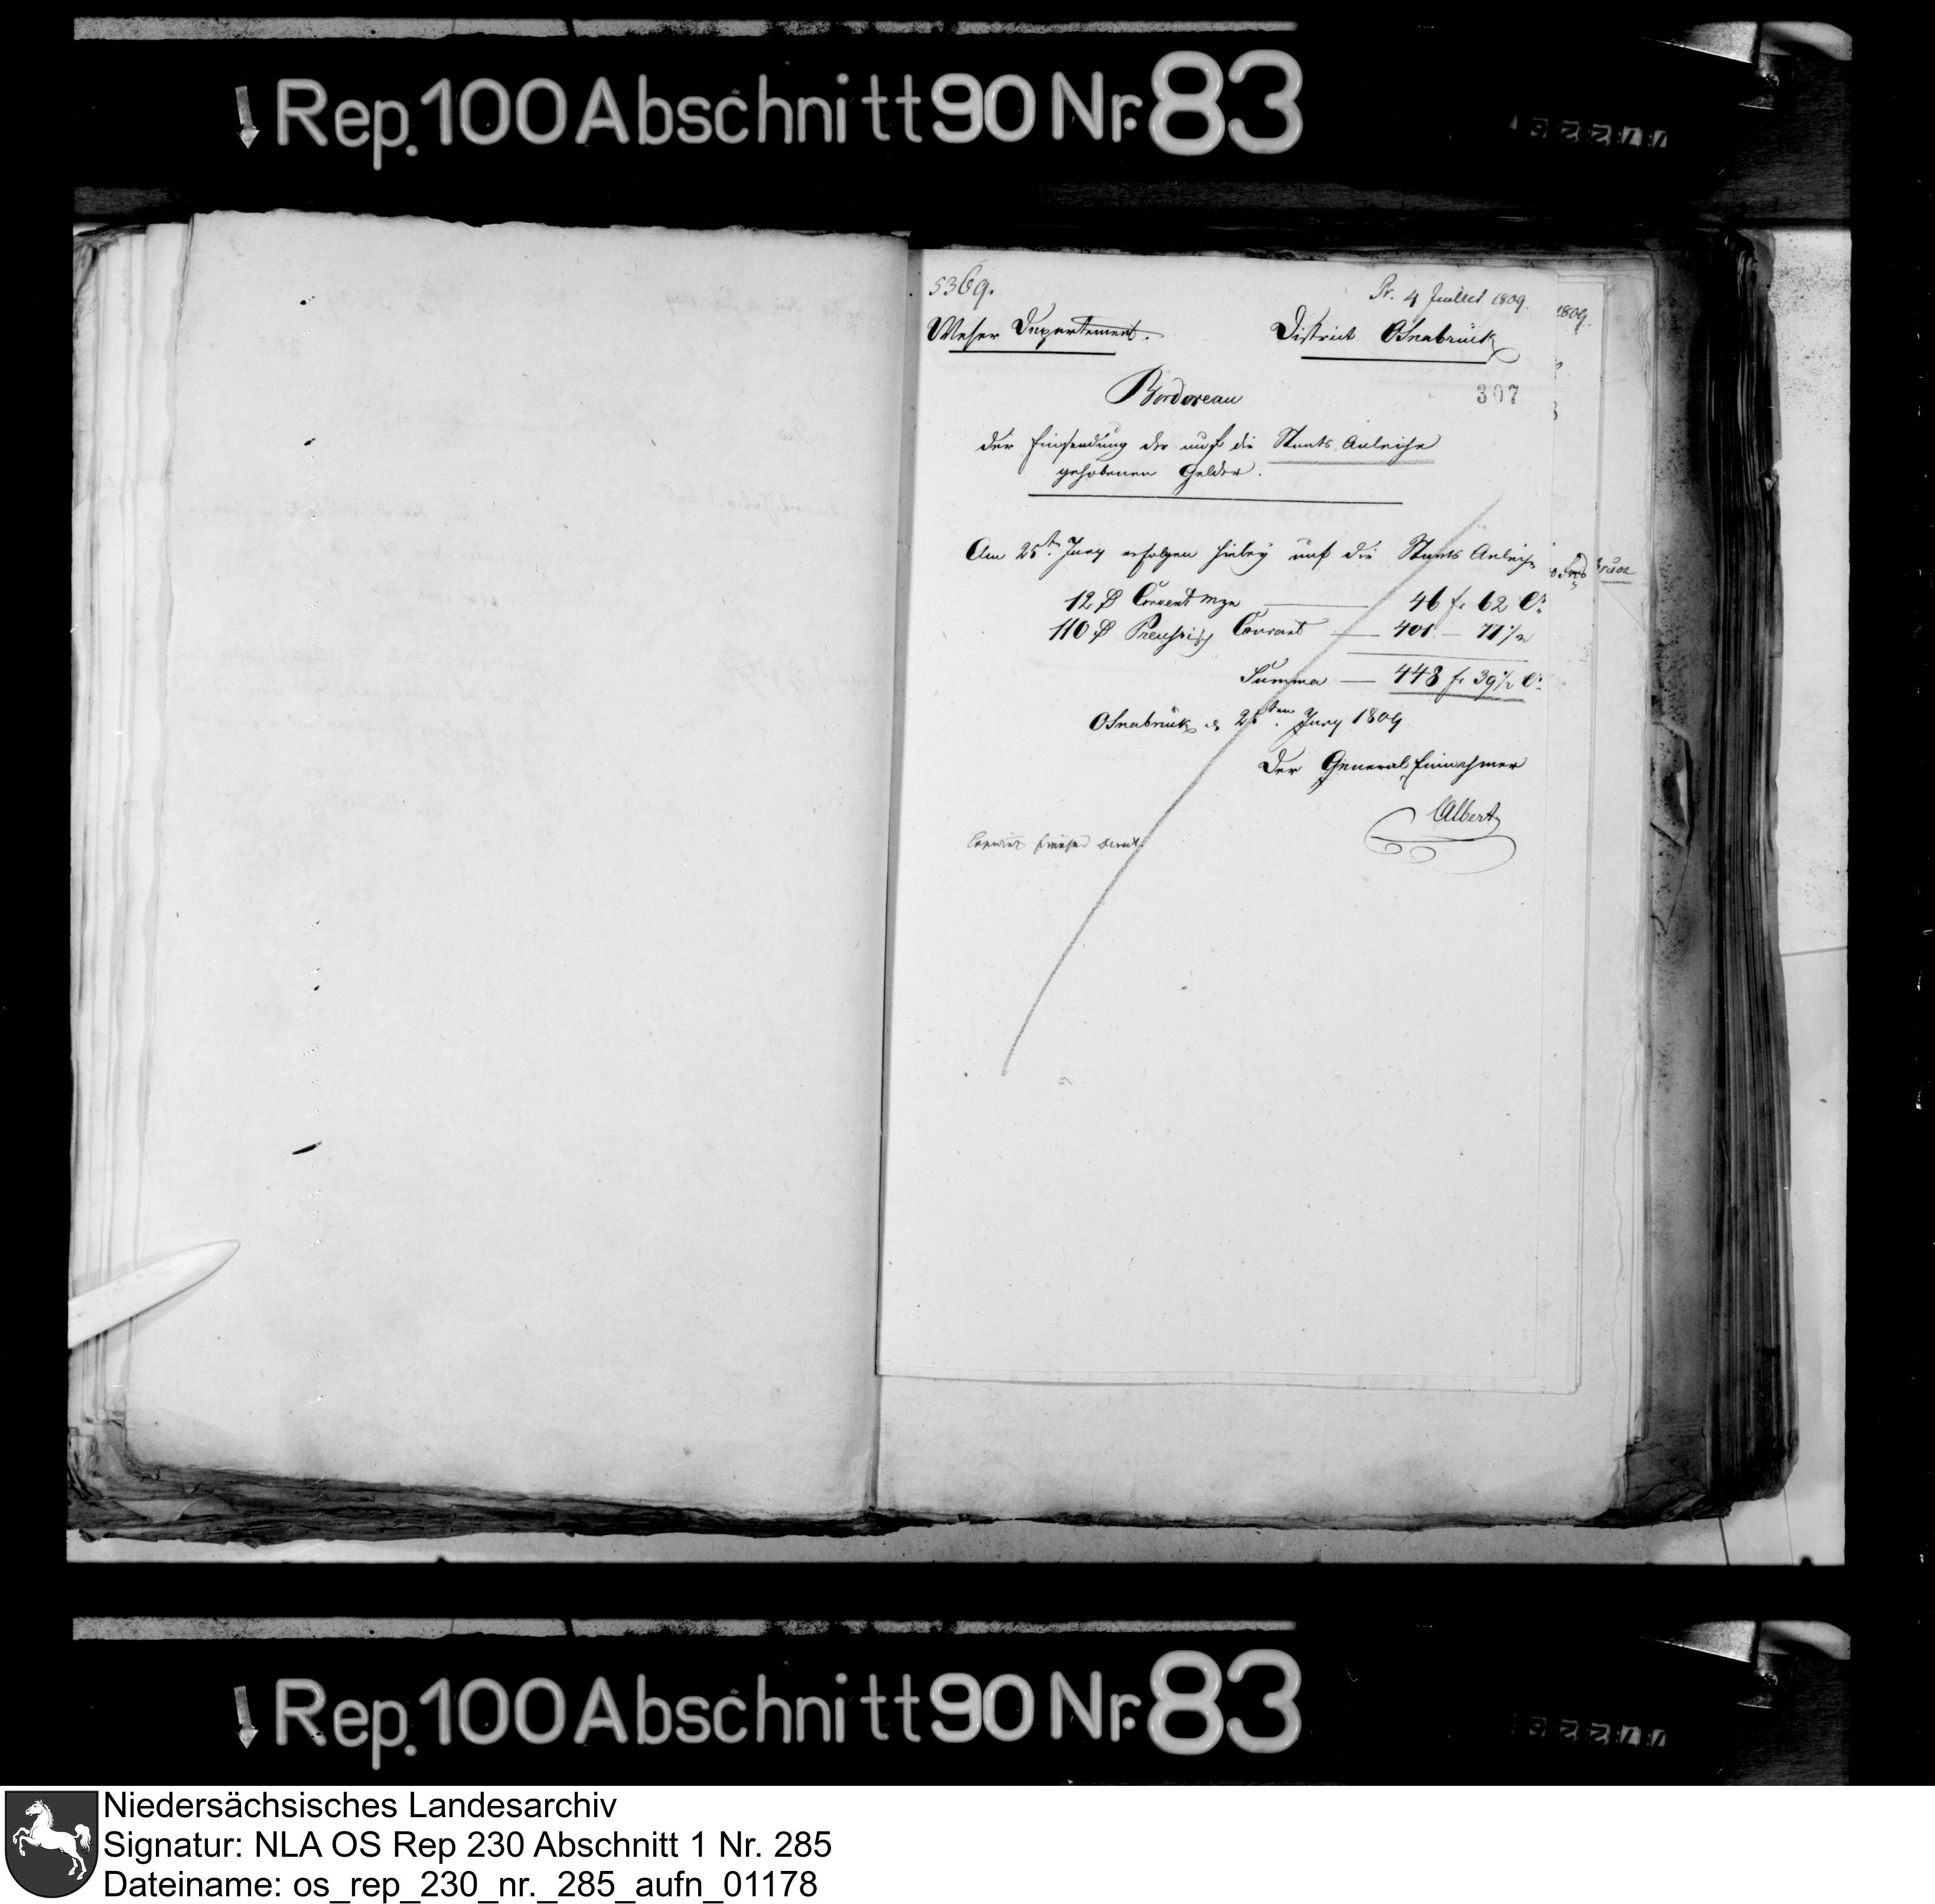 Rep. 100 Abschnitt 90 Nr. 83
5369.
Pr. 4 Juillet 1809.
1809.
Weser Departement.
District Osnabrück
307
Bordereau
der Einsendung der auf die Staats Anleihe
gehobenen Gelder.
Am 25t. Juny erfolgen hiebey auf die Staats Anleihe
12 Convent Mze — 46 f. 62 C.
110 Preussisch Courant — 401 — 77 1/2
Summa — 448 f. 39 1/2 C.
Osnabrück d. 25ten Juny 1809
Der General Einnehmer
Albert
Rep. 100 Abschnitt 90 Nr. 83
Niedersächsisches Landesarchiv
Signatur: NLA OS Rep 230 Abschnitt 1 Nr. 285
Dateiname: os_rep_230_nr._285_aufn_01178